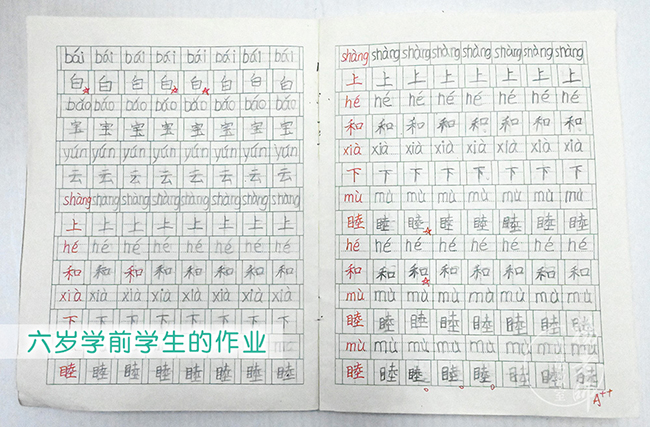 bái bái bái bái bái bái bái bái
白 白 白 白 白 白 白 白
bǎo bǎo bǎo bǎo bǎo bǎo bǎo bǎo
宝 宝 宝 宝 宝 宝 宝 宝
yún yún yún yún yún yún yún yún
云 云 云 云 云 云 云 云
shàng shàng shàng shàng shàng shàng shàng shàng
上 上 上 上 上 上 上 上
hé hé hé hé hé hé hé hé
和 和 和 和 和 和 和 和
xià xià xià xià xià xià xià xià
下 下 下 下 下 下 下 下
六岁学前学生的作业
mù
睦 睦 睦 睦 睦 睦 睦 睦
shàng shàng shàng shàng shàng shàng shàng shàng
上 上 上 上 上 上 上 上
hé hé hé hé hé hé hé hé
和 和 和 和 和 和 和 和
xià xià xià xià xià xià xià xià
下 下 下 下 下 下 下 下
mù mù mù mù mù mù mù mù
睦 睦 睦 睦 睦 睦 睦 睦
hé hé hé hé hé hé hé hé
和 和 和 和 和 和 和 和
mù mù mù mù mù mù mù mù
睦 睦 睦 睦 睦 睦 睦 睦
mù mù mù mù mù mù mù mù
睦 睦 睦 睦 睦 睦 睦 睦
A++